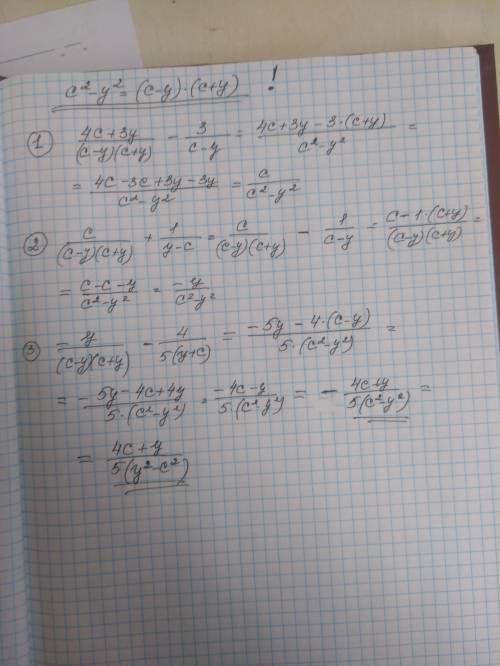 c² - y² = (c-y)·(c+y) !
① (4c+3y)/((c-y)(c+y)) - 3/(c-y) = (4c+3y-3·(c+y))/(c²-y²) =
= (4c-3c+3y-3y)/(c²-y²) = c/(c²-y²)
② c/((c-y)(c+y)) + 1/(y-c) = c/((c-y)(c+y)) - 1/(c-y) = (c-1·(c+y))/((c-y)(c+y)) =
= (c-c-y)/(c²-y²) = -y/(c²-y²)
③ -y/((c-y)(c+y)) - 4/(5(y+c)) = (-5y-4·(c-y))/(5·(c²-y²)) =
= (-5y-4c+4y)/(5·(c²-y²)) = (-4c-y)/(5·(c²-y²)) = - (4c+y)/(5(c²-y²)) =
= (4c+y)/(5(y²-c²))